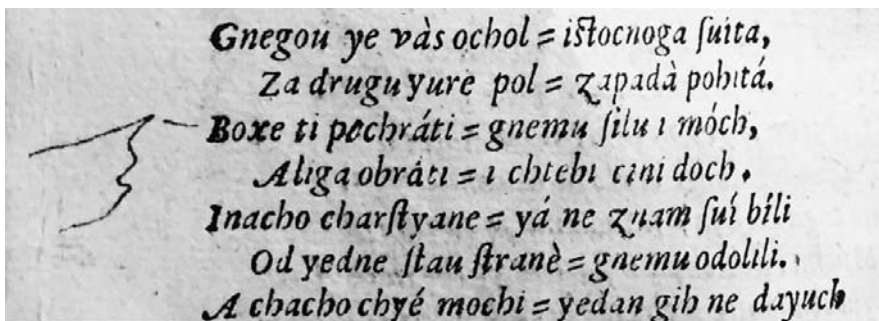 Gnegou ye vàs ochol = iſtocnoga ſuita,
Za drugu yure pol = zapadà pohitá.
Boxe ti pochráti = gnemu ſilu i móch,
Aliga obráti = i chtebi cini doch.
Inacho charſtyane = yá ne znam ſuí bíli
Od yedne ſtau ſtranè = gnemu odolili.
A chacho chyé mochi = yedan gih ne dayuch